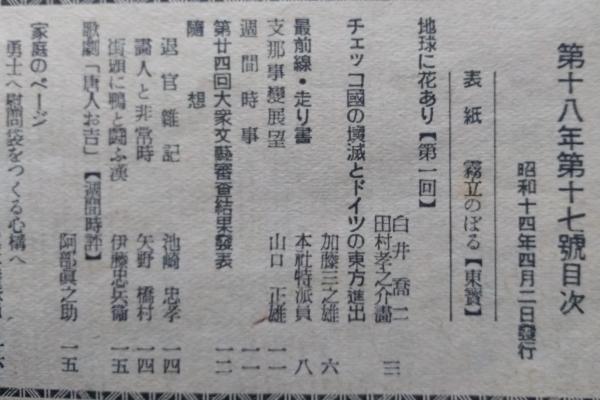 第十八年第十七號目次
昭和十四年四月二日發行
表紙 霧立のぼる【東寶】
地球に花あり【第一回】
白井喬二
田村孝之介畵 三
チェッコ國の壞滅とドイツの東方進出
加藤三之雄 六
最前線・走り書 本社特派員 八
支那事變展望 山口正雄 一一
週間時事 一一
第廿四回大衆文藝審査結果發表 一二
隨想
退官雜記 池崎忠孝 一四
畵人と非常時 矢野橋村 一四
街頭に鴨と鬪ふ漢 伊藤忠兵衞 一五
歌劇「唐人お吉」【週間時評】 阿部眞之助 一五
家庭のページ
勇士へ慰問袋をつくる心構へ